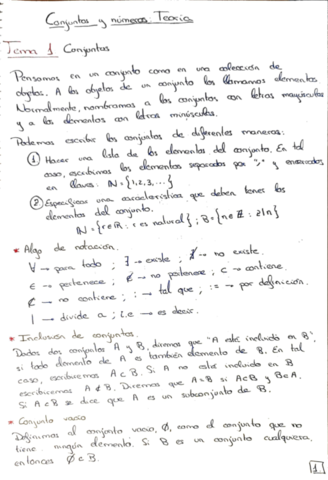 Conjuntos y números. Teoría
Tema 1 Conjuntos
Pensamos en un conjunto como en una colección de
objetos. A los objetos de un conjunto los llamamos elementos
Normalmente, nombramos a los conjuntos con letras mayúsculas
y a los elementos con letras minúsculas.
Podemos escribir los conjuntos de diferentes maneras:
① Hacer una lista de los elementos del conjunto. En tal
caso, escribimos los elementos separados por "," y encerrados
en llaves: ℕ = {1,2,3,...}
② Especificar una característica que deben tener los
elementos del conjunto.
ℕ = {r∈ℝ : r es natural} ; B = {n∈ℤ : 2|n}
* Algo de notación.
∀ → para todo ; ∃ → existe ; ∄ → no existe.
∈ → pertenece ; ∉ → no pertenece ; ⊂ → contiene.
⊄ → no contiene ; : → tal que ; := → por definición.
| → divide a ; i.e → es decir.
* Inclusión de conjuntos.
Dados dos conjuntos A y B, diremos que "A está incluido en B"
si todo elemento de A es también elemento de B. En tal
caso, escribiremos A⊂B. Si A no está incluido en B
escribiremos A⊄B. Diremos que A=B si A⊂B y B⊂A.
Si A⊂B se dice que A es un subconjunto de B.
* Conjunto vacío
Definimos el conjunto vacío, ∅, como el conjunto que no
tiene ningún elemento. Si B es un conjunto cualquiera,
entonces ∅⊂B.
1